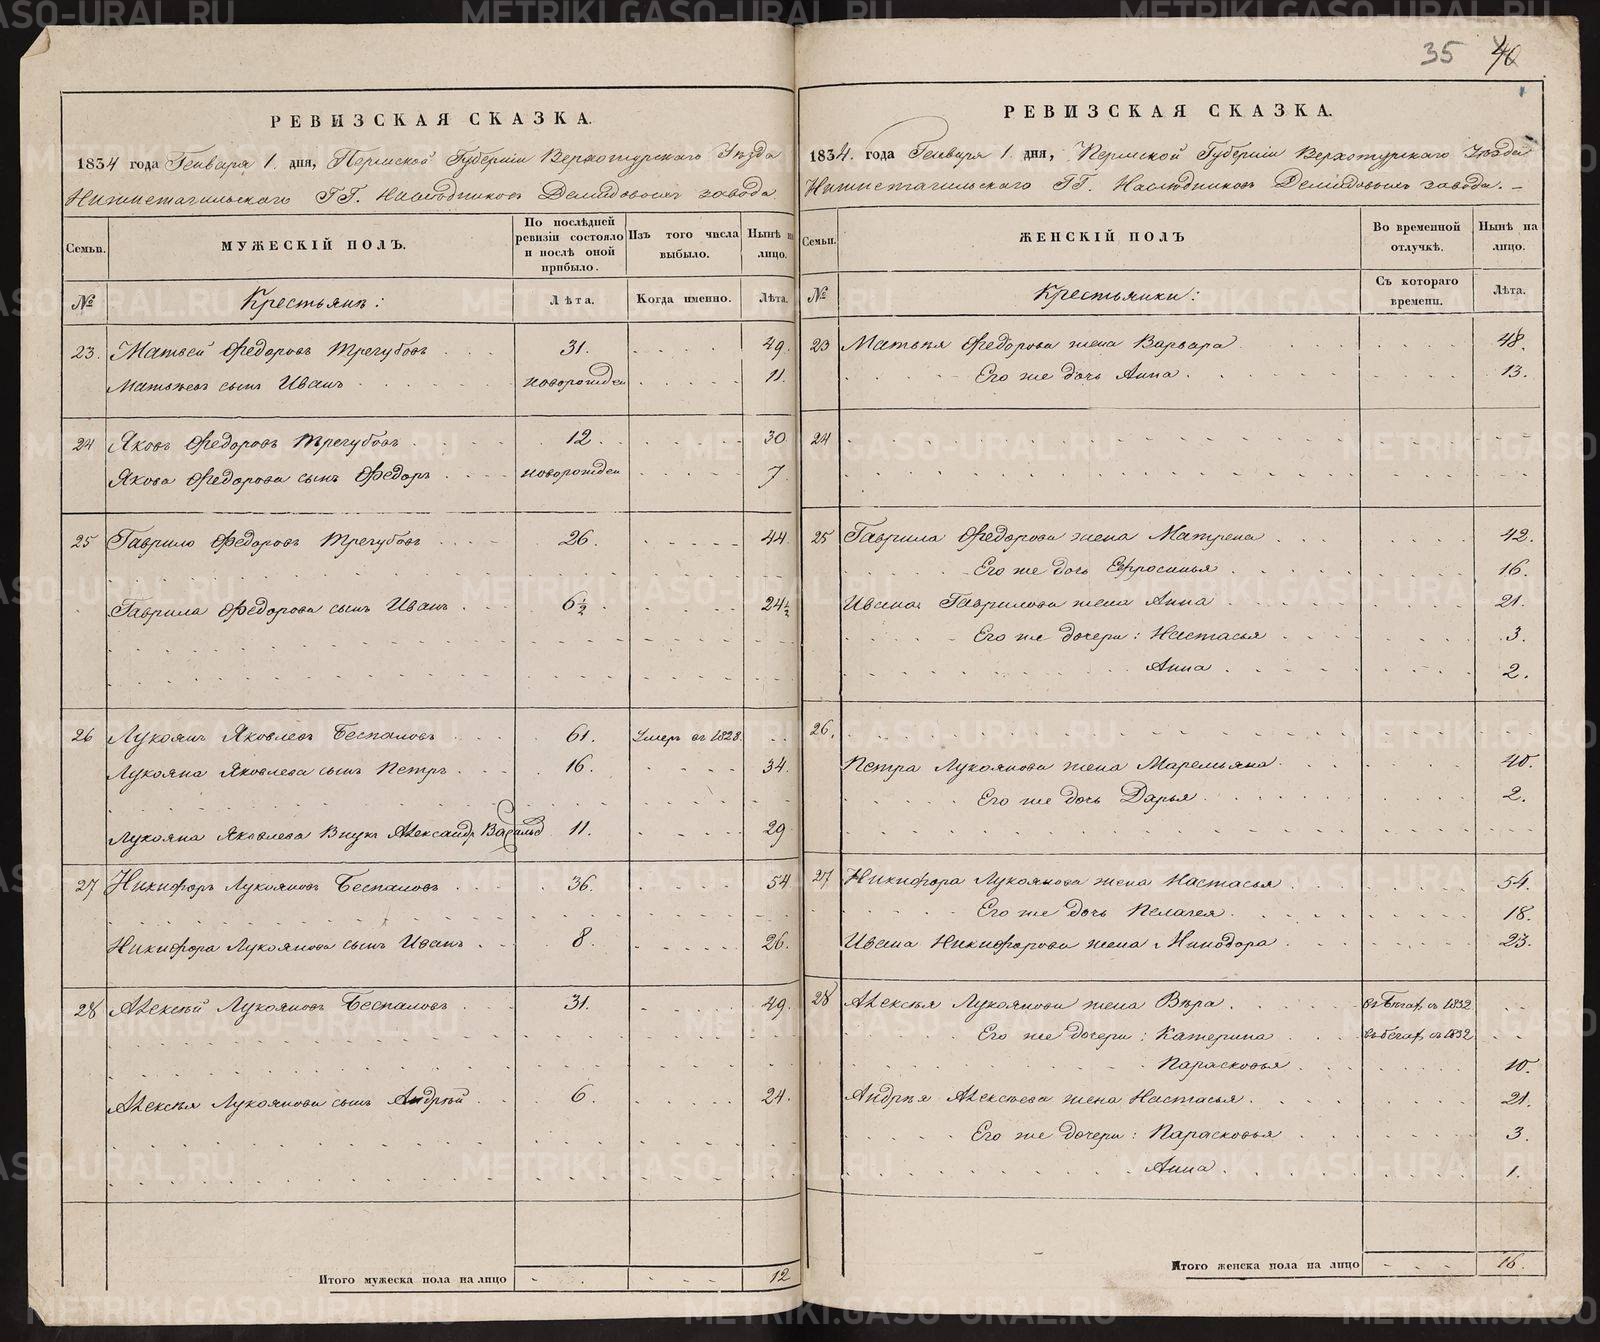 35 40
РЕВИЗСКАЯ СКАЗКА.
1834 года Генваря 1. дня, Пермской Губернiи Верхотурскаго Уѣзда
Нижнетагильскаго ГГ. Наслѣдниковъ Демидовыхъ завода
Семьи.
МУЖЕСКIЙ ПОЛЪ.
По послѣдней ревизiи состояло и послѣ оной прибыло.
Изъ того числа выбыло.
Нынѣ на лицо.
№ Крестьянъ: Лѣта. Когда именно. Лѣта.
23. Матвей Федоровъ Трегубовъ 31. 49.
Матвѣевъ сынъ Иванъ новорожден 11.
24 Яковъ Федоровъ Трегубовъ 12. 30.
Якова Федорова сынъ Федоръ новорожден 7
25 Гаврило Федоровъ Трегубовъ 26. 44.
Гаврила Федорова сынъ Иванъ 6½ 24½
26 Лукоянъ Яковлевъ Беспаловъ 61. Умеръ въ 1828.
Лукояна Яковлева сынъ Петръ 16. 34.
Лукояна Яковлева Внукъ Александръ Васильв 11. 29
27 Никифоръ Лукояновъ Беспаловъ 36. 54
Никифора Лукоянова сынъ Иванъ 8. 26.
28 Алексѣй Лукояновъ Беспаловъ 31. 49.
Алексѣя Лукоянова сынъ Андрѣй 6. 24.
Итого мужеска пола на лицо 12
РЕВИЗСКАЯ СКАЗКА.
1834. года Генваря 1. дня, Пермской Губернiи Верхотурскаго Уѣзда
Нижнетагильскаго ГГ. Наслѣдниковъ Демидовыхъ завода.
Семьи.
ЖЕНСКIЙ ПОЛЪ
Во временной отлучкѣ.
Нынѣ на лицо.
№ Крестьянки: Съ котораго времени. Лѣта.
23 Матвѣя Федорова жена Варвара 48.
Его же дочь Анна. 13.
24
25 Гаврила Федорова жена Матрена 42.
Его же дочь Ефросинья 16.
Ивана Гаврилова жена Анна 21.
Его же дочери: Настасья 3.
Анна 2.
26.
Петра Лукоянова жена Маремьяна 40.
Его же дочь Дарья 2.
27 Никифора Лукоянова жена Настасья 54.
Его же дочь Пелагея. 18.
Ивана Никифорова жена Минодора 23.
28 Алексѣя Лукоянова жена Вѣра въ бегах съ 1832
Его же дочери: Катерина въ бегах съ 1832
Парасковья 10.
Андрѣя Алексѣева жена Настасья. 21.
Его же дочери: Парасковья 3.
Анна 1.
Итого женска пола на лицо 16.
METRIKI.GASO-URAL.RU